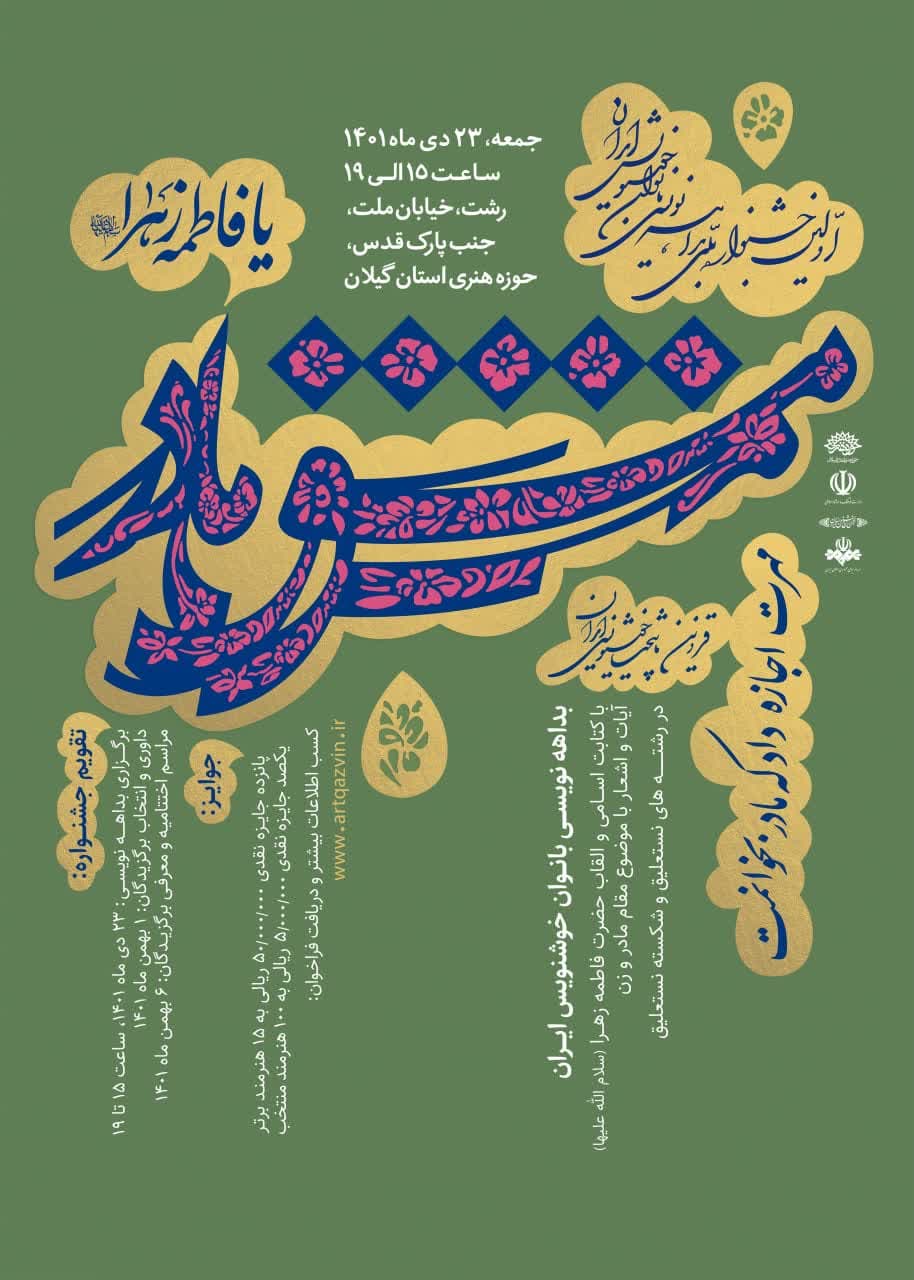 اولین جشنواره ملی بداهه نویسی بانوان خوشنویس ایران
جمعه، ۲۳ دی ماه ۱۴۰۱
ساعت ۱۵ الی ۱۹
رشت، خیابان ملت،
جنب پارک قدس،
حوزه هنری استان گیلان
یا فاطمه زهرا
مشق مادر
مهرت اجازه داد که مادر بخوانمت
قزوین پایتخت خوشنویسی ایران
بداهه نویسی بانوان خوشنویس ایران
با کتابت اسامی و القاب حضرت فاطمه زهرا (سلام الله علیها)
آیات و اشعار با موضوع مقام مادر و زن
در رشته های نستعلیق و شکسته نستعلیق
کسب اطلاعات بیشتر و دریافت فراخوان:
www.artqazvin.ir
جوایز:
پانزده جایزه نقدی ۵۰/۰۰۰/۰۰۰ ریالی به ۱۵ هنرمند برتر
یکصد جایزه نقدی ۵/۰۰۰/۰۰۰ ریالی به ۱۰۰ هنرمند منتخب
تقویم جشنواره:
برگزاری بداهه نویسی: ۲۳ دی ماه ۱۴۰۱، ساعت ۱۵ تا ۱۹
داوری و انتخاب برگزیدگان: ۱ بهمن ماه ۱۴۰۱
مراسم اختتامیه و معرفی برگزیدگان: ۶ بهمن ماه ۱۴۰۱